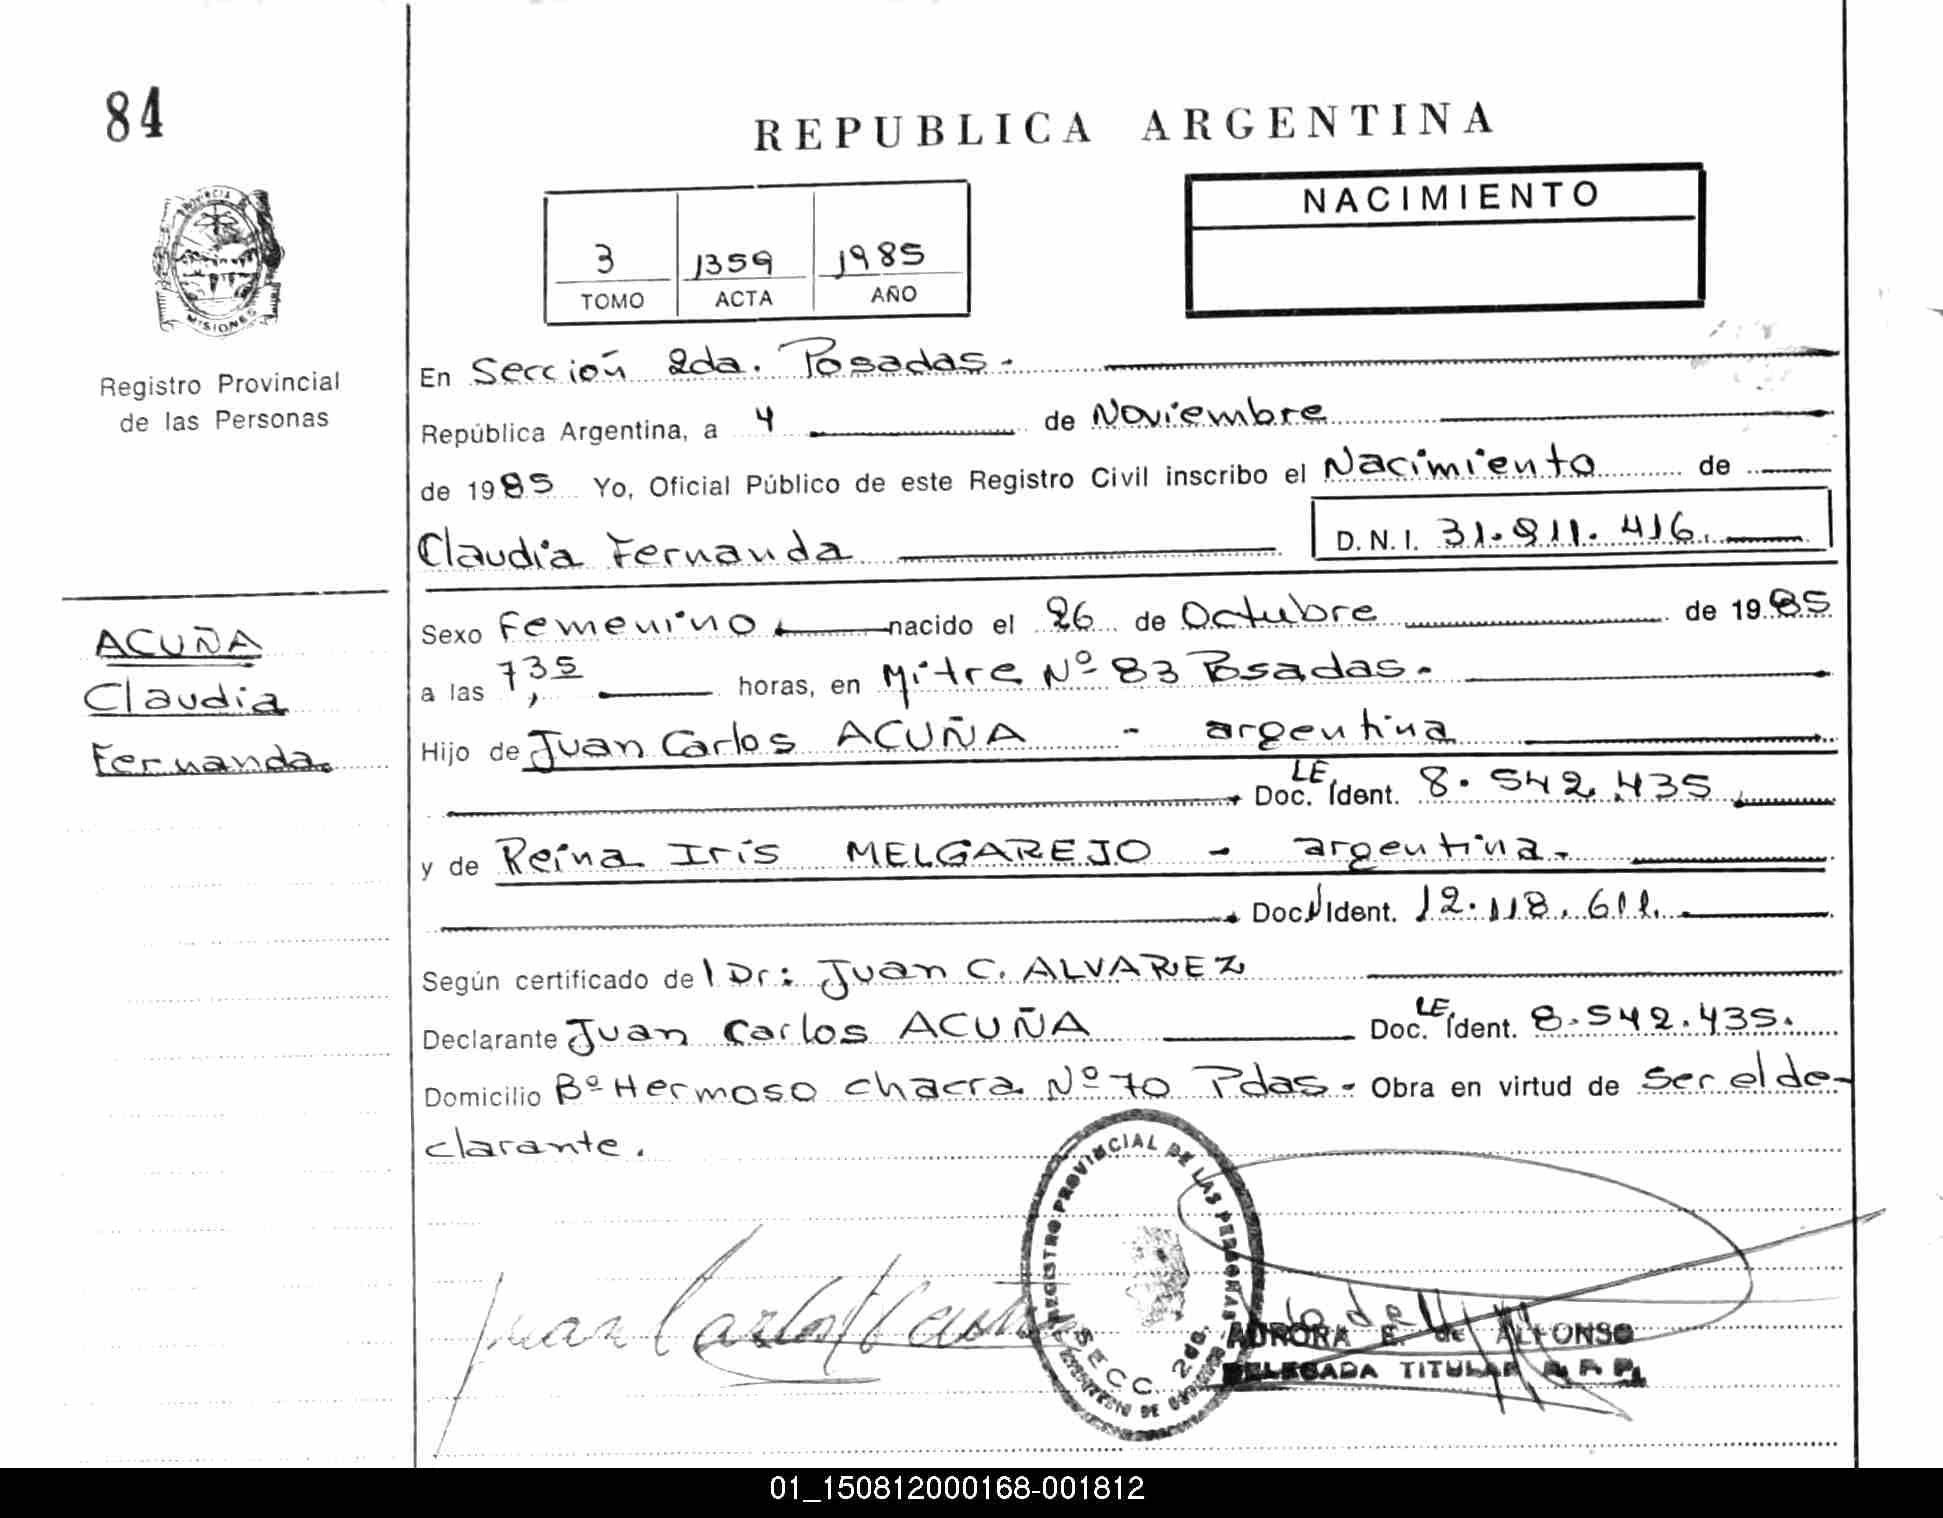 84
REPUBLICA ARGENTINA
PROVINCIA
MISIONES
Registro Provincial
de las Personas
NACIMIENTO
3 1359 1985
TOMO ACTA AÑO
En Sección 2da. Posadas.-
República Argentina, a 4 de Noviembre
de 1985 Yo, Oficial Público de este Registro Civil inscribo el Nacimiento de
Claudia Fernanda D.N.I. 31.811.416.
ACUÑA
Claudia
Fernanda.
Sexo Femenino nacido el 26 de Octubre de 1985
a las 7,35 horas, en Mitre Nº 83 Posadas.
Hijo de Juan Carlos ACUÑA - argentina
LE.
Doc. Ident. 8.542.435
y de Reina Iris MELGAREJO - argentina.
Doc. Ident. 12.118.611.
Según certificado del Dr: Juan C. ALVAREZ
LE.
Declarante Juan Carlos ACUÑA Doc. Ident. 8.542.435.
Domicilio Bº Hermoso chacra Nº 70 Pdas - Obra en virtud de Ser el de-
clarante.
REGISTRO PROVINCIAL DE LAS PERSONAS
SECC. 2da.
Juan Carlos Acuña
AURORA E. de ALFONSO
DELEGADA TITULAR R. P. P.
01_150812000168-001812